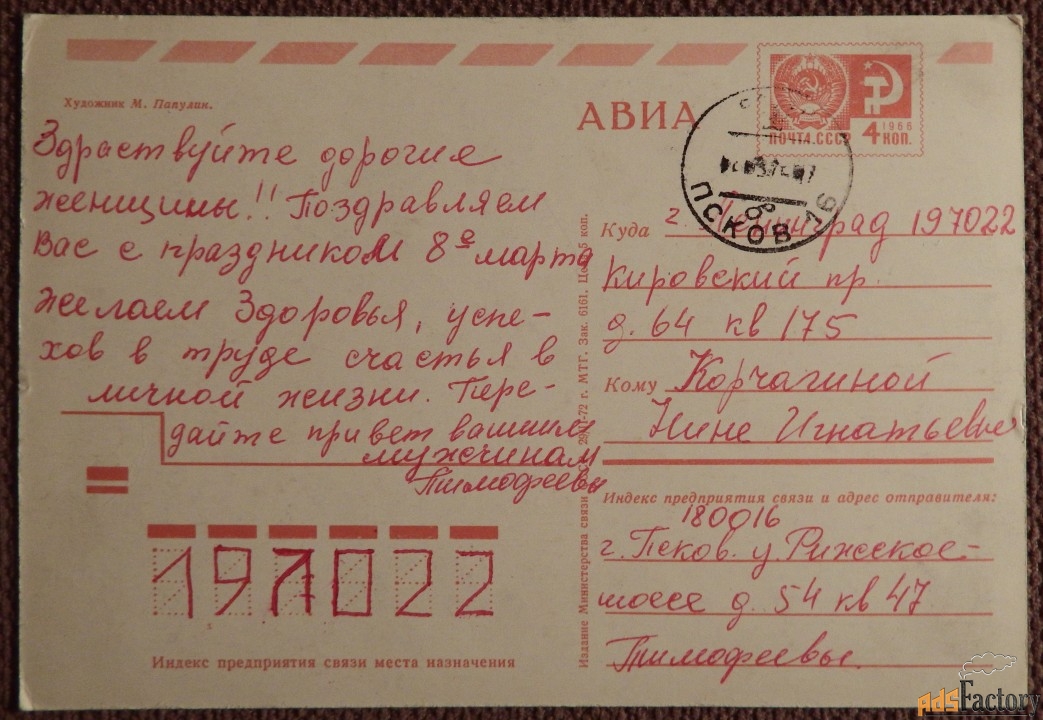 Художник М. Папулин.
АВИА
1966
ПОЧТА СССР
4 КОП.
ПСКОВ
Здраствуйте дорогие
женщины!! Поздравляем
Вас с праздником 8е марта
желаем Здоровья, успе-
хов в труде счастья в
личной жизни. Пере-
дайте привет вашим
мужчинам
Тимофеевы
Куда г. Ленинград 197022
Кировский пр.
д. 64 кв 175
Кому Корчагиной
Нине Игнатьевне
Индекс предприятия связи и адрес отправителя:
180016
г. Псков. у. Рижское-
шоссе д. 54 кв 47
Тимофеевы.
197022
Индекс предприятия связи места назначения
Издание Министерства связи
72 г. МТГ. Зак. 6161. Цена 5 коп.
AdsFactory